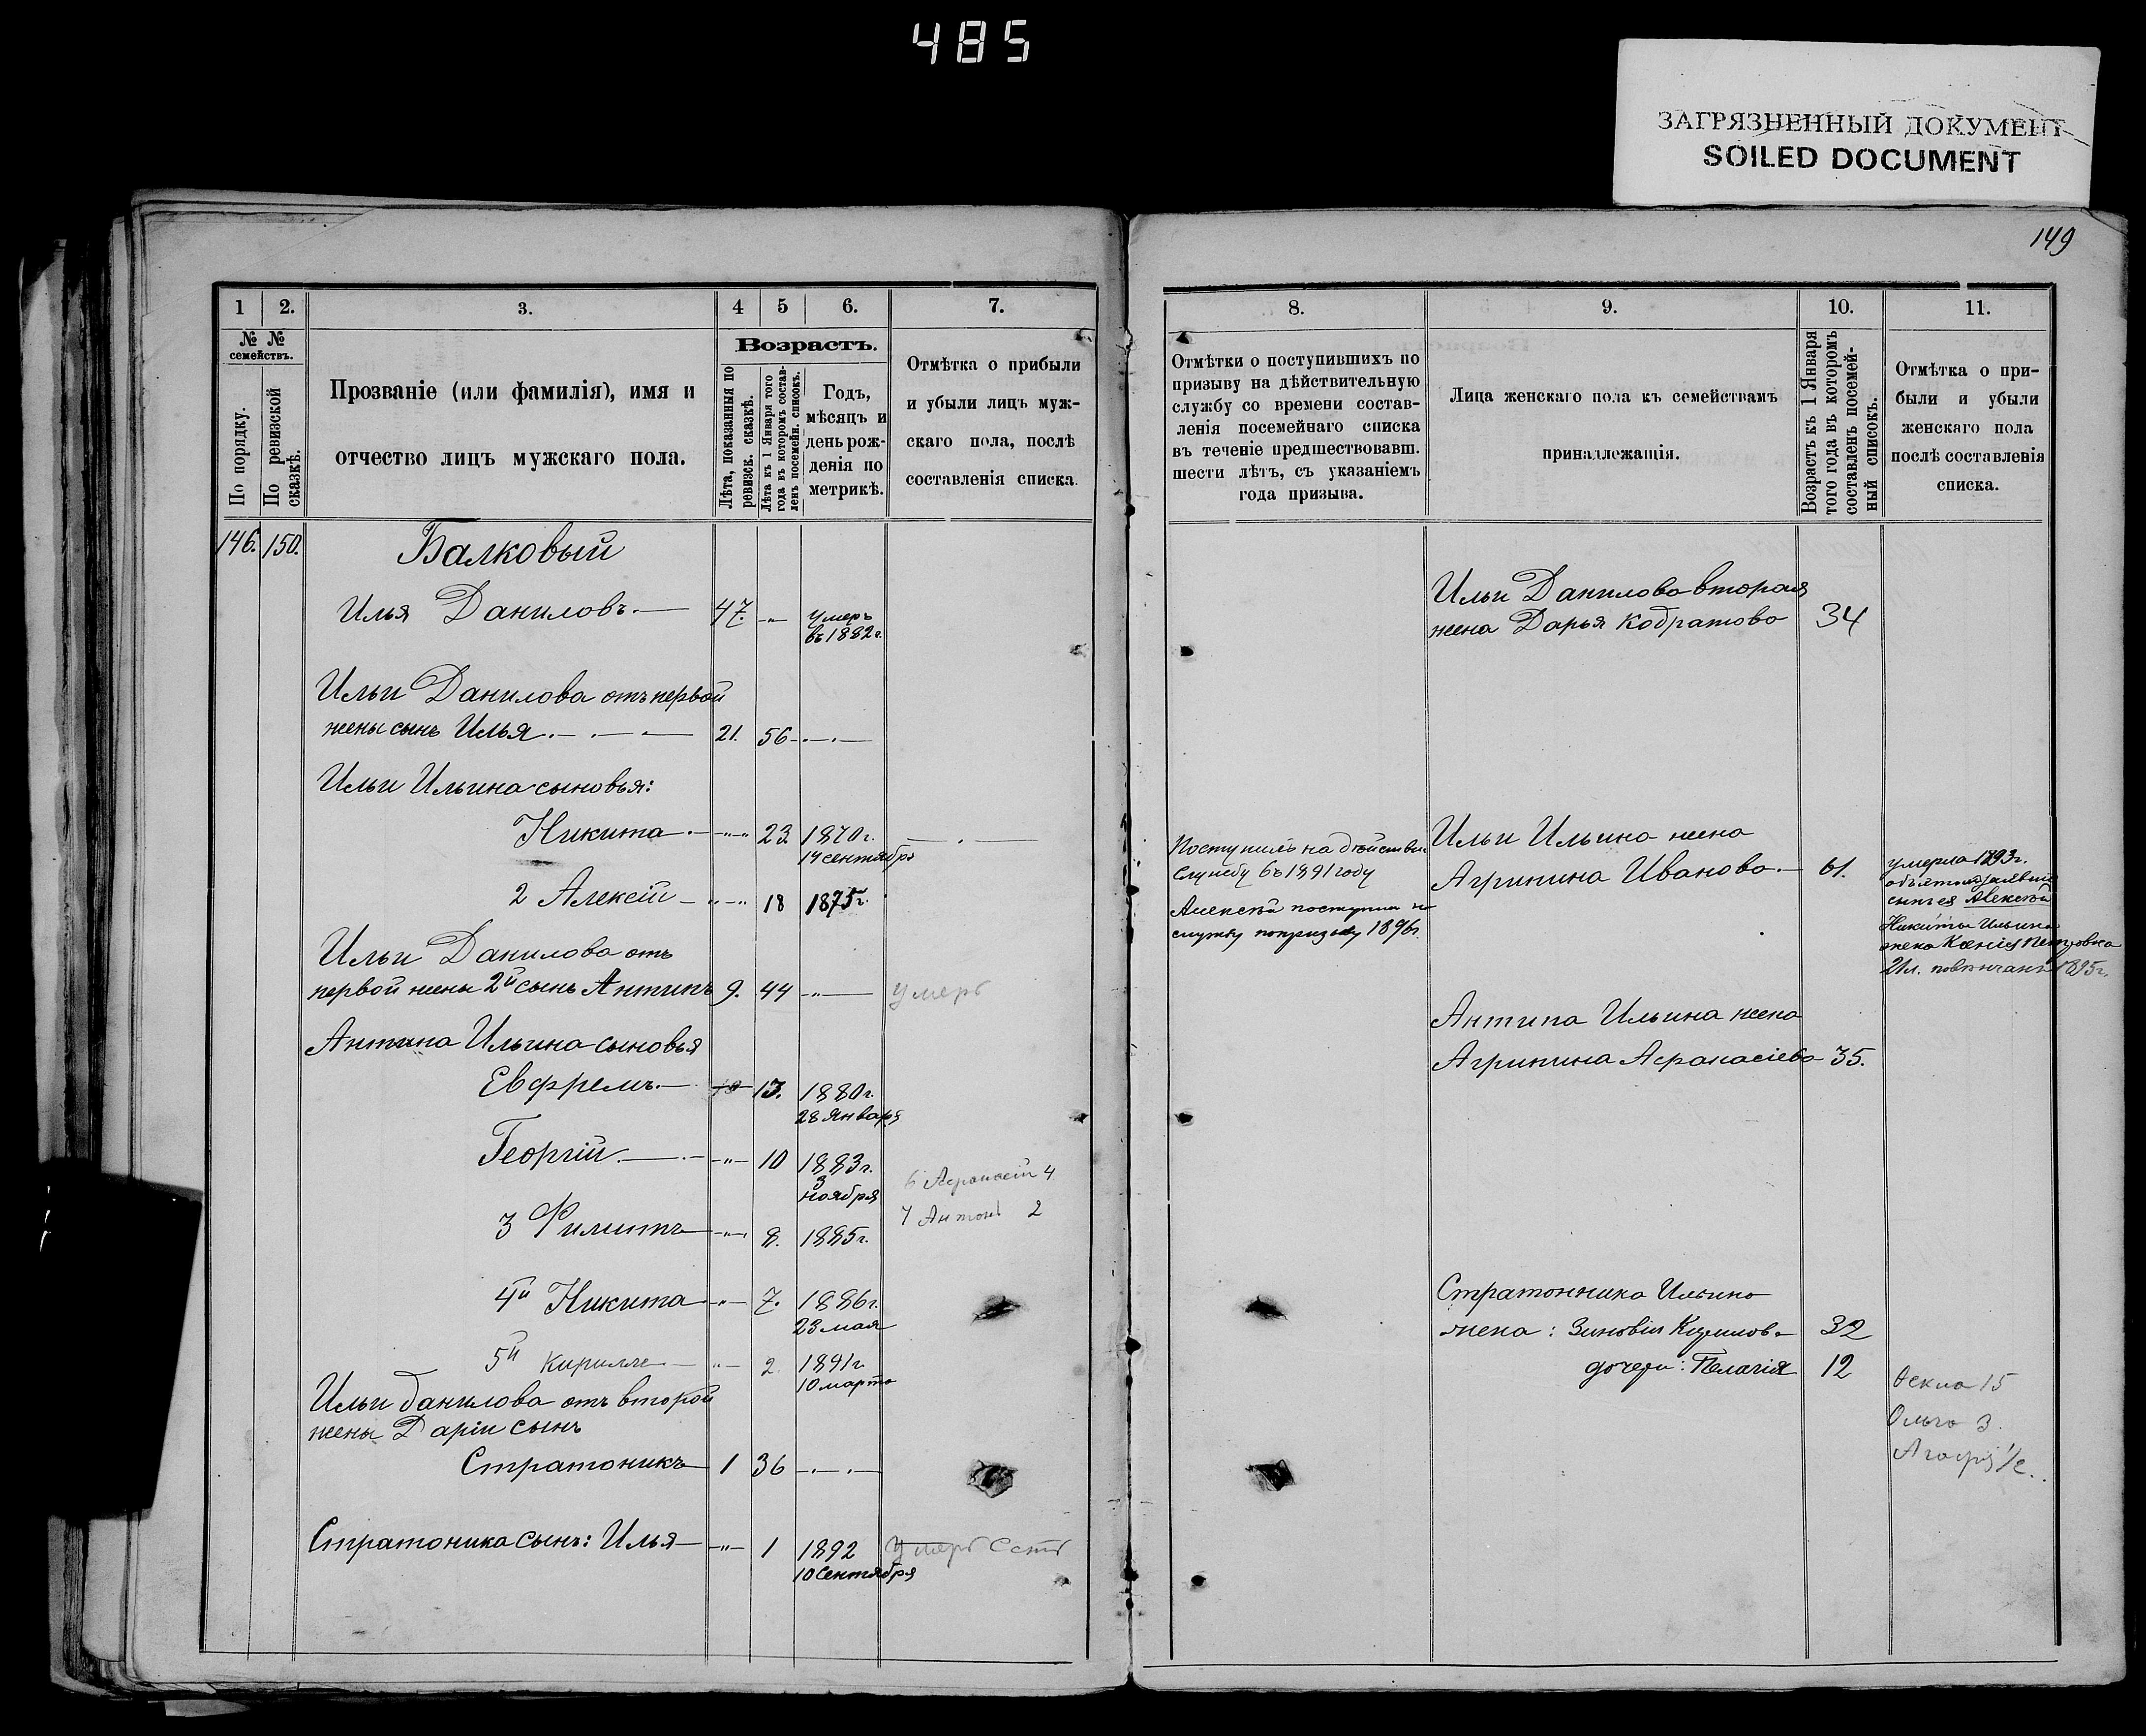 485
ЗАГРЯЗНЕННЫЙ ДОКУМЕНТ
SOILED DOCUMENT
149
1
2.
3.
4
5
6.
7.
№ №
семействъ.
По порядку.
По ревизской
сказкѣ.
Прозваніе (или фамилія), имя и
отчество лицъ мужскаго пола.
Возрастъ.
Лѣта, показанныя по
ревизск. сказкѣ.
Лѣта къ 1 Января того
года въ которомъ состав-
ленъ посемейн. списокъ.
Годъ,
мѣсяцъ и
день рож-
денія по
метрикѣ.
Отмѣтка о прибыли
и убыли лицъ муж-
скаго пола, послѣ
составленія списка.
146. 150. Балковый
Илья Даниловъ. 47. умеръ
въ 1882 г.
Ильи Данилова отъ первой
жены сынъ Илья 21. 56
Ильи Ильина сыновья:
Никита 23 1870 г.
14 сентября
2 Алексій 18 1875 г.
Ильи Данилова отъ
первой жены 2й сынъ Антипъ 9. 44 умеръ
Антипа Ильина сыновья
Евфремъ 13. 1880 г.
28 Января
Георгій 10 1883 г.
3
ноября
6 Афанасій 4
7 Антонъ 2
3 Филитъ 8. 1885 г.
4й Никита 7. 1886 г.
23 мая
5й Кирилле 2 1891 г.
10 марта
Ильи Данилова отъ второй
жены Даріи сынъ
Стратоникъ 1 36
Стратоника сынъ: Илья 1 1892 умеръ Есть
10 Сентября
8.
9.
10.
11.
Отмѣтки о поступившихъ по
призыву на дѣйствительную
службу со времени состав-
ленія посемейнаго списка
въ теченіе предшествовавш.
шести лѣтъ, съ указаніемъ
года призыва.
Лица женскаго пола къ семействамъ
принадлежащія.
Возрастъ къ 1 Января
того года въ которомъ
составленъ посемей-
ный списокъ.
Отмѣтка о при-
были и убыли
женскаго пола
послѣ составленія
списка.
Ильи Данилова вторая
жена Дарья Кодратова 34
Поступилъ на дѣйстви.
Службу въ 1891 году
Алексѣй поступил на
службу по призыву 1896 г.
Ильи Ильина жена
Агрипина Иванова 61.
умерла 1893 г.
сынъ ея Алексѣй
Никиты Ильина
жена Ксенія Петровна
21 л. повѣнчанъ 1895 г.
Антипа Ильина жена
Агрипина Афанасіева 35.
Стратонника Ильина
жена: Зиновія Кирилов. 32
дочери: Пелагія 12
Ѳекла 15
Ольга 3.